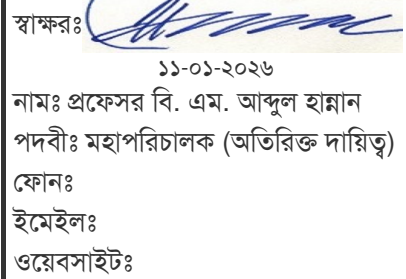 স্বাক্ষরঃ
১১-০১-২০২৬
নামঃ প্রফেসর বি. এম. আব্দুল হান্নান
পদবীঃ মহাপরিচালক (অতিরিক্ত দায়িত্ব)
ফোনঃ
ইমেইলঃ
ওয়েবসাইটঃ